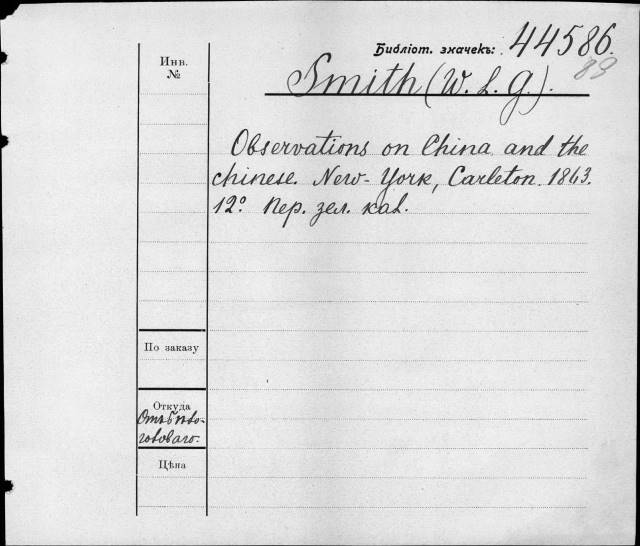 Библіот. значекъ: 44586.
83
Инв.
№
Smith (W. L. G.).
Observations on China and the
chinese. New-York, Carleton. 1863.
12º. Пер. зел. кал.
По заказу
Откуда
Цѣна